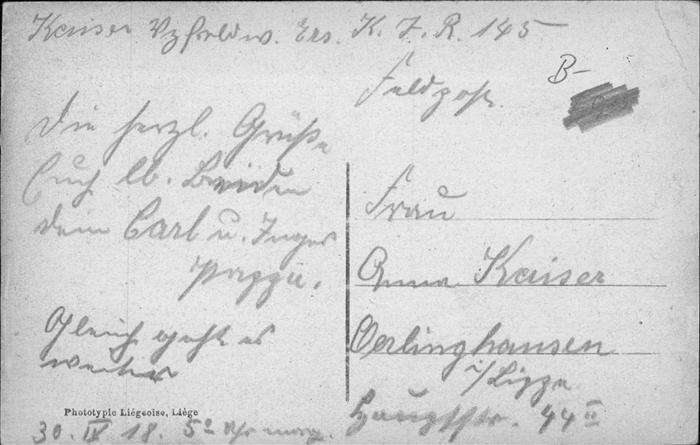 Kaiser Vzfeldw. Ers. K. I. R. 145
Feldpost.
B-
Die herzl. Grüße
Euch lb. Beiden
dein Carl u. Inges
Pappa.
Gleich geht es
weiter
Frau
Anna Kaiser
Oerlinghausen
i/Lippe
Hauptstr. 44 II
Phototypie Liégeoise, Liége
30. IV 18. 5⁰ Uhr morg.